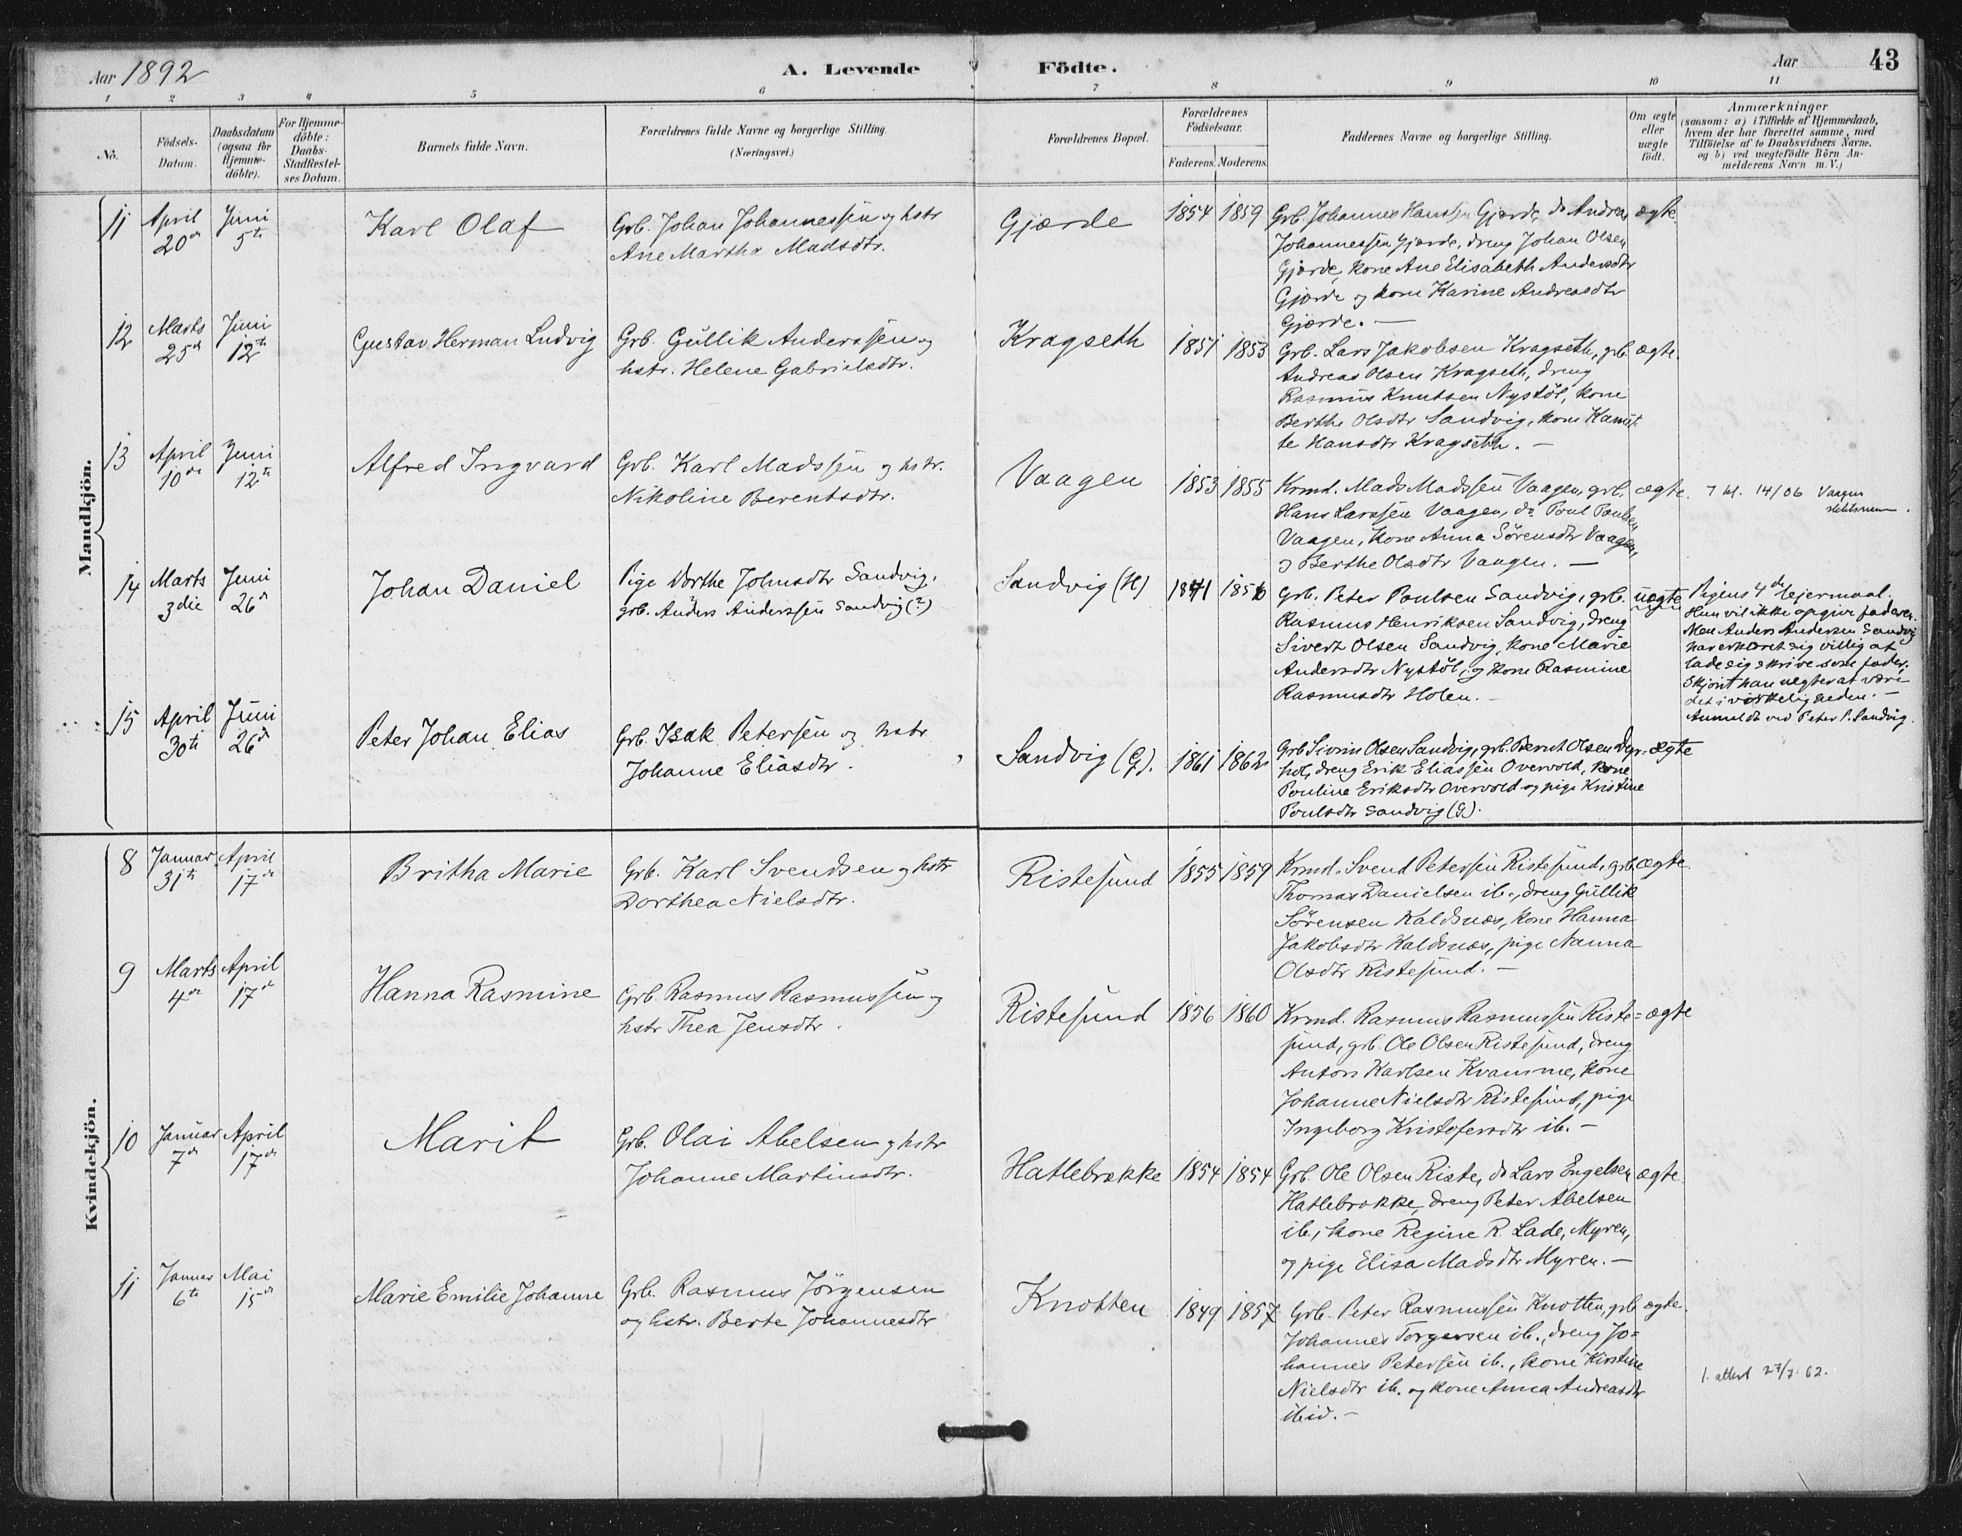 Aar 1892
A. Levende Födte.
Aar
43
1 2 3 4 5 6 7 8 9 10 11
No.
Födsels-
Datum.
Daabsdatum
(ogsaa for
Hjemme-
döbte).
For Hjemme-
döbte:
Daabs-
Stadfæstel-
ses Datum.
Barnets fulde Navn.
Forældrenes fulde Navne og borgerlige Stilling.
(Næringsvei.)
Forældrenes Bopæl.
Forældrenes
Födselsaar.
Faderens. Moderens.
Faddernes Navne og borgerlige Stilling.
Om ægte
eller
uægte
födt.
Anmærkninger
(saasom: a) i Tilfælde af Hjemmedaab,
hvem der har forrettet samme, med
Tilföielse af to Daabsvidners Navne.
og b) ved uægtefödte Börn An-
melderens Navn m. V.)
Mandkjön.
11
April
20de
Juni
5te
Karl Olaf
Grb. Johan Johannessen og hstr
Ane Martha Madsdtr.
Gjærde
1854 1859
Grb. Johannes Hanssen Gjærde, do Andreas
Johannessen Gjærde, dreng Johan Olsen
Gjærde, kone Ane Elisabeth Andersdtr
Gjærde og kone Karine Andreasdtr
Gjærde. —
ægte
12
Marts
25de
Juni
12te
Gustav Herman Ludvig
Grb. Gullik Anderssen og
hstr. Helene Gabrielsdtr.
Kragseth
1851 1853
Grb. Lars Jakobsen Kragseth, grb.
Andreas Olsen Kragseth, dreng
Rasmus Knutsen Nystöl, kone
Berthe Olsdtr Sandvig, kone Kamit-
te Hansdtr Kragseth. —
ægte.
13
April
10de
Juni
12te
Alfred Ingvard
Grb. Karl Madssen og hstr.
Nikoline Berentsdtr.
Vaagen
1853 1855
Krmd. Mads Madssen Vaagen, grb.
Hans Larssen Vaagen, do Poul Poulsen
Vaagen, kone Anna Sörensdtr Vaagen,
og Berthe Olsdtr Vaagen. —
ægte.
14/06 Vaagen
14
Marts
3die
Juni
26de
Johan Daniel
Pige Dorthe Johnsdtr Sandvig,
grb. Anders Anderssen Sandvig (?)
Sandvig (H)
1841 1856
Grb. Peter Poulsen Sandvig, grb.
Rasmus Henriksen Sandvig, dreng
Sivert Olsen Sandvig, kone Marie
Andersdtr Nystöl, og kone Rasmine
Rasmusdtr Holen. —
uægte
Pigens 4de lejermaal.
Hun vil ikke opgive faderen.
Men Anders Andersen Sandvig
har erklæret sig villig at
lade sig skrive som fader,
skjönt han negter at være
det i virkeligheden. —
Anmeldt ved Peter P. Sandvig.
15
April
30te
Juni
26de
Peter Johan Elias
Grb. Isak Petersen og hstr
Johanne Eliasdtr.
Sandvig (G).
1861 1862
Grb Sivrin Olsen Sandvig, grb. Bernt Olsen Dyr-
hol, dreng Erik Eliassen Overvold, kone
Pouline Eriksdtr Overvold og pige Kristine
Poulsdtr Sandvig (G).
ægte
Kvindekjön.
8
Januar
31te
April
17de
Britha Marie
Grb. Karl Svendsen og hstr
Dorthea Nielsdtr.
Ristesund
1855 1859
Krmd. Svend Petersen Ristesund, grb.
Thomas Danielsen ib., dreng Gullik
Sörensen Kaldsnæs, kone Hanna
Jakobsdtr Kaldsnæs, pige Nanna
Olsdtr Ristesund. —
ægte.
9
Marts
4de
April
17de
Hanna Rasmine
Grb. Rasmus Rasmussen og
hstr Thea Jensdtr.
Ristesund
1856 1860
Krmd. Rasmus Rasmussen Riste=
sund, grb. Ole Olsen Ristesund, dreng
Anton Karlsen Kvamme, kone
Johanne Nielsdtr Ristesund, pige
Ingeborg Kristofersdtr ib. —
ægte
10
Januar
7de
April
17de
Marit
Grb. Olai Abelsen og hstr
Johanne Martinsdtr.
Hatlebrække
1854 1854
Grb. Ole Olsen Riste, do Lars Engelsen
Hatlebrække, dreng Peter Abelsen
ib., kone Regine R. Lade, Myren,
og pige Elisa Madsdtr Myren. —
ægte.
11
Januar
6te
Mai
15de
Marie Emilie Johanne
Grb. Rasmus Jörgensen
og hstr. Berte Johannesdtr
Knotten
1849 1857
Grb. Peter Rasmussen Knotten, grb
Johannes Torgersen ib., dreng Jo=
hannes Petersen ib., kone Kirstine
Nielsdtr ib. og kone Anna Andreasdtr
ibid. —
ægte.
1. attest 27/7. 62.